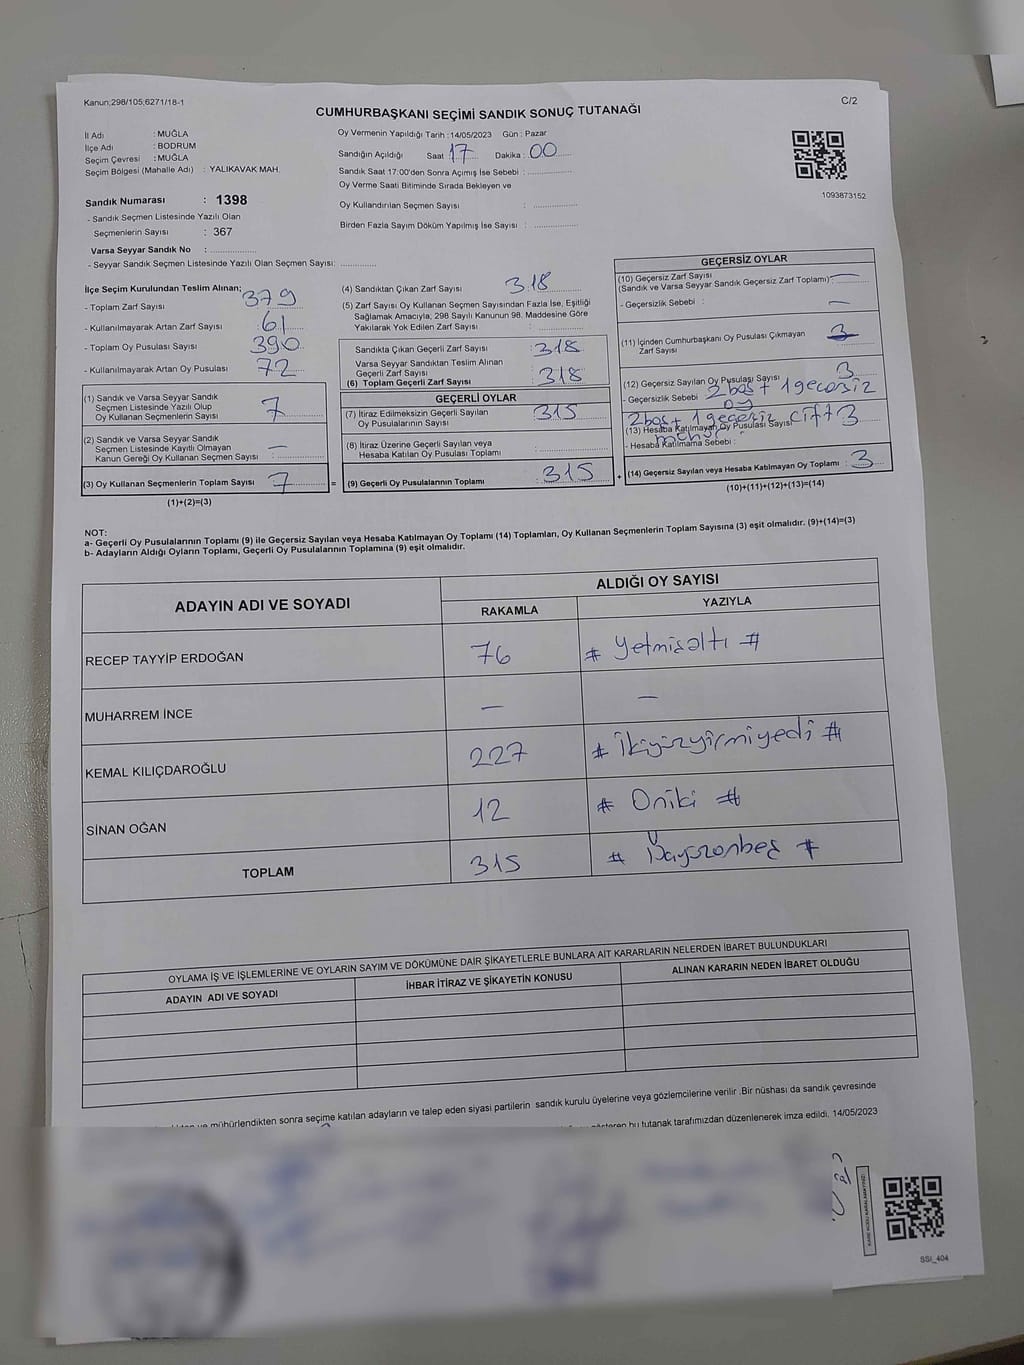 Kanun;298/105;6271/18-1
C/2
CUMHURBAŞKANI SEÇİMİ SANDIK SONUÇ TUTANAĞI
İl Adı : MUĞLA
İlçe Adı : BODRUM
Seçim Çevresi : MUĞLA
Seçim Bölgesi (Mahalle Adı) : YALIKAVAK MAH.
Oy Vermenin Yapıldığı Tarih : 14/05/2023 Gün : Pazar
Sandığın Açıldığı Saat 17 Dakika : 00
Sandık Saat 17:00'den Sonra Açımış İse Sebebi :
Oy Verme Saati Bitiminde Sırada Bekleyen ve
Oy Kullandırılan Seçmen Sayısı :
Birden Fazla Sayım Döküm Yapılmış İse Sayısı :
1093873152
Sandık Numarası : 1398
- Sandık Seçmen Listesinde Yazılı Olan
Seçmenlerin Sayısı : 367
Varsa Seyyar Sandık No :
- Seyyar Sandık Seçmen Listesinde Yazılı Olan Seçmen Sayısı:
İlçe Seçim Kurulundan Teslim Alınan;
- Toplam Zarf Sayısı : 379
- Kullanılmayarak Artan Zarf Sayısı : 61
- Toplam Oy Pusulası Sayısı : 390
- Kullanılmayarak Artan Oy Pusulası : 72
(1) Sandık ve Varsa Seyyar Sandık
Seçmen Listesinde Yazılı Olup
Oy Kullanan Seçmenlerin Sayısı : 7
(2) Sandık ve Varsa Seyyar Sandık
Seçmen Listesinde Kayıtlı Olmayan
Kanun Gereği Oy Kullanan Seçmen Sayısı : —
(3) Oy Kullanan Seçmenlerin Toplam Sayısı : 7
(1)+(2)=(3)
(4) Sandıktan Çıkan Zarf Sayısı : 318
(5) Zarf Sayısı Oy Kullanan Seçmen Sayısından Fazla İse, Eşitliği
Sağlamak Amacıyla, 298 Sayılı Kanunun 98. Maddesine Göre
Yakılarak Yok Edilen Zarf Sayısı :
Sandıkta Çıkan Geçerli Zarf Sayısı : 318
Varsa Seyyar Sandıktan Teslim Alınan
Geçerli Zarf Sayısı
(6) Toplam Geçerli Zarf Sayısı : 318
GEÇERLİ OYLAR
(7) İtiraz Edilmeksizin Geçerli Sayılan
Oy Pusulasının Sayısı : 315
(8) İtiraz Üzerine Geçerli Sayılan veya
Hesaba Katılan Oy Pusulası Toplamı :
(9) Geçerli Oy Pusulalarının Toplamı : 315
GEÇERSİZ OYLAR
(10) Geçersiz Zarf Sayısı
(Sandık ve Varsa Seyyar Sandık Geçersiz Zarf Toplamı): —
- Geçersizlik Sebebi : —
(11) İçinden Cumhurbaşkanı Oy Pusulası Çıkmayan
Zarf Sayısı
(12) Geçersiz Sayılan Oy Pusulası Sayısı : 3
- Geçersizlik Sebebi : 2 boş + 1 geçersiz
oy
2 boş + 1 geçersiz çift 3
(13) Hesaba Katılmayan Oy Pusulası Sayısı
mühür
- Hesaba Katılmama Sebebi :
(14) Geçersiz Sayılan veya Hesaba Katılmayan Oy Toplamı : 3
(10)+(11)+(12)+(13)=(14)
NOT:
a- Geçerli Oy Pusulalarının Toplamı (9) ile Geçersiz Sayılan veya Hesaba Katılmayan Oy Toplamı (14) Toplamları, Oy Kullanan Seçmenlerin Toplam Sayısına (3) eşit olmalıdır. (9)+(14)=(3)
b- Adayların Aldığı Oyların Toplamı, Geçerli Oy Pusulalarının Toplamına (9) eşit olmalıdır.
ADAYIN ADI VE SOYADI
ALDIĞI OY SAYISI
RAKAMLA YAZIYLA
RECEP TAYYİP ERDOĞAN 76 # Yetmişaltı #
MUHARREM İNCE — —
KEMAL KILIÇDAROĞLU 227 # İkiyüzyirmiyedi #
SİNAN OĞAN 12 # Oniki #
TOPLAM 315 # Üçyüzonbeş #
OYLAMA İŞ VE İŞLEMLERİNE VE OYLARIN SAYIM VE DÖKÜMÜNE DAİR ŞİKAYETLERLE BUNLARA AİT KARARLARIN NELERDEN İBARET BULUNDUKLARI
ADAYIN ADI VE SOYADI İHBAR İTİRAZ VE ŞİKAYETİN KONUSU ALINAN KARARIN NEDEN İBARET OLDUĞU
mühürlendikten sonra seçime katılan adayların ve talep eden siyasi partilerin sandık kurulu üyelerine veya gözlemcilerine verilir .Bir nüshası da sandık çevresinde
bu tutanak tarafımızdan düzenlenerek imza edildi. 14/05/2023
KARE KODU KARALAMAYINIZ!
SSI_404